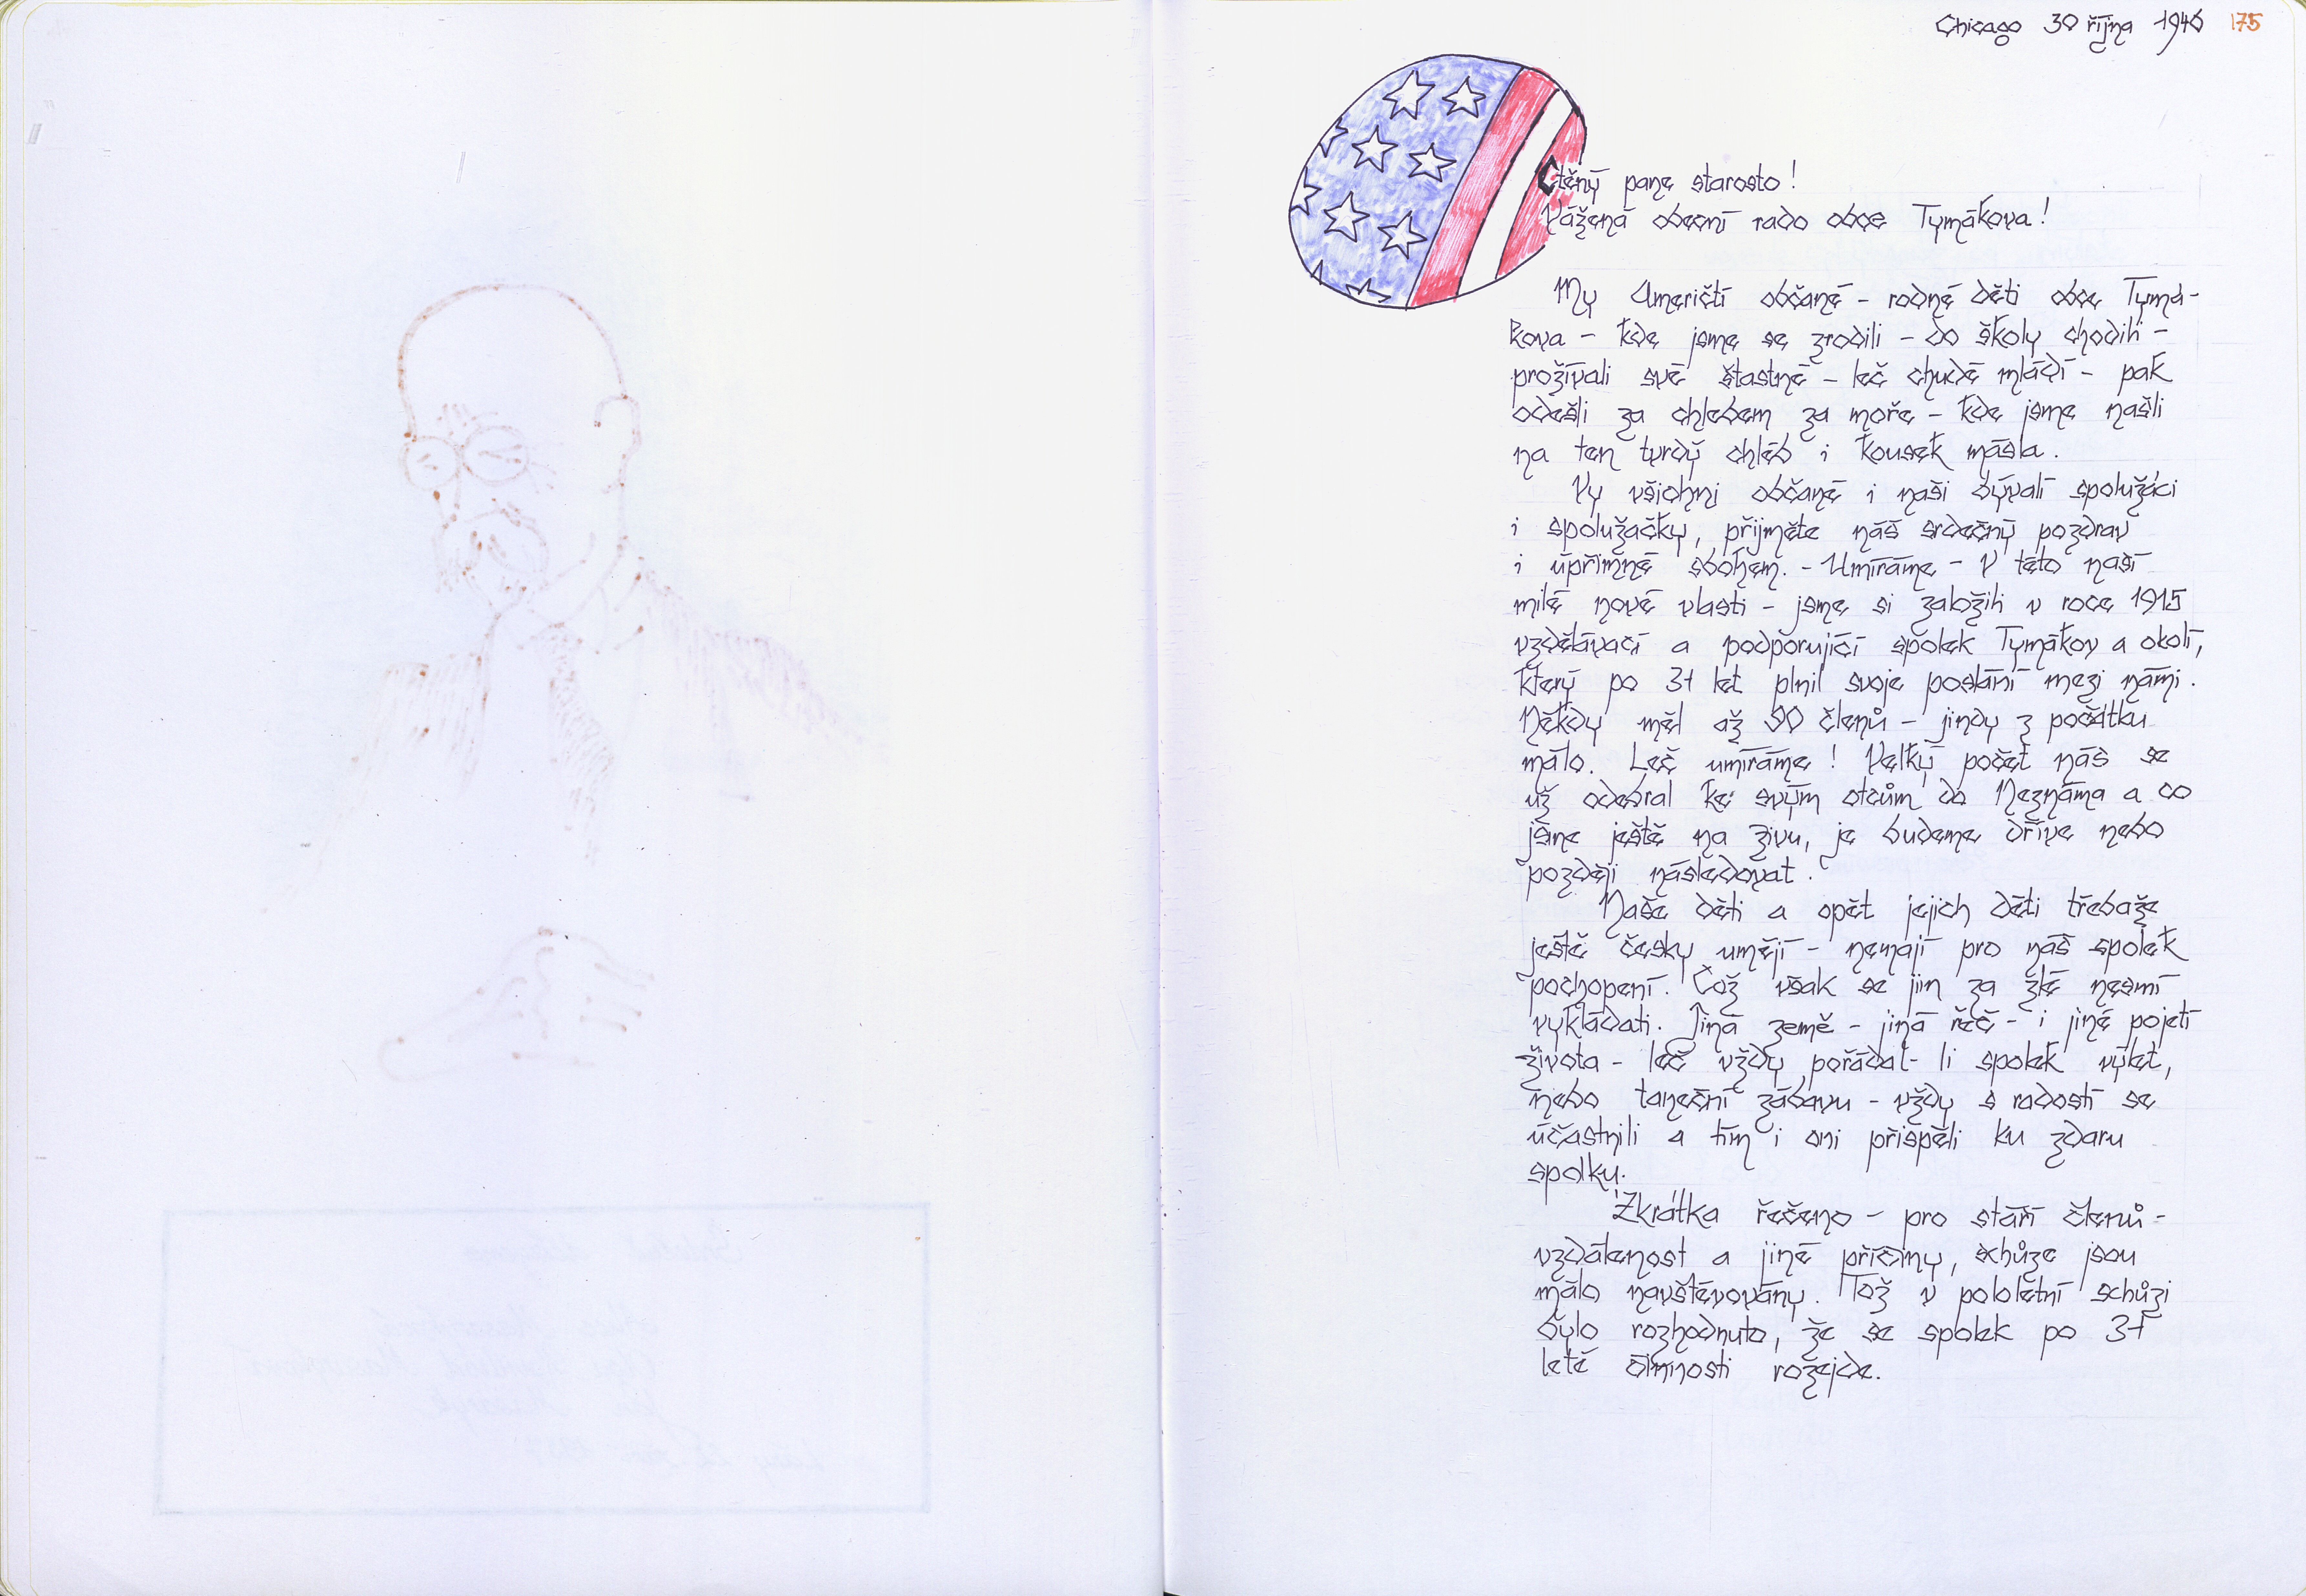 Chicago 30 října 1946 175
Ctěný pane starosto!
Vážená obecní rado obce Tymákova!
My Američtí občané - rodné děti obce Tymá-
kova - kde jsme se zrodili - do školy chodili -
prožívali své šťastné - leč chudé mládí - pak
odešli za chlebem za moře - kde jsme našli
na ten tvrdý chléb i kousek másla.
Vy všichni občané i naši bývalí spolužáci
i spolužačky, přijměte náš srdečný pozdrav
i upřímné sbohem. - Umíráme - V této naší
milé nové vlasti - jsme si založili v roce 1915
vzdělávací a podporující spolek Tymákov a okolí,
který po 31 let plnil svoje poslání mezi námi.
Někdy měl až 90 členů - jindy z počátku
málo. Leč umíráme! Velký počet nás se
už odebral ke svým otcům do Neznáma a co
jsme ještě na živu, je budeme dříve nebo
později následovat.
Naše děti a opět jejich děti třebaže
ještě česky umějí - nemají pro náš spolek
pochopení. Což však se jim za zlé nesmí
vykládati. Jiná země - jiná řeč - i jiné pojetí
života - leč vždy pořádal-li spolek výlet,
nebo taneční zábavu - vždy s radostí se
účastnili a tím i oni přispěli ku zdaru
spolku.
Zkrátka řečeno - pro stáří členů -
vzdálenost a jiné příčiny, schůze jsou
málo navštěvovány. Tož v pololetní schůzi
bylo rozhodnuto, že se spolek po 31
leté činnosti rozejde.